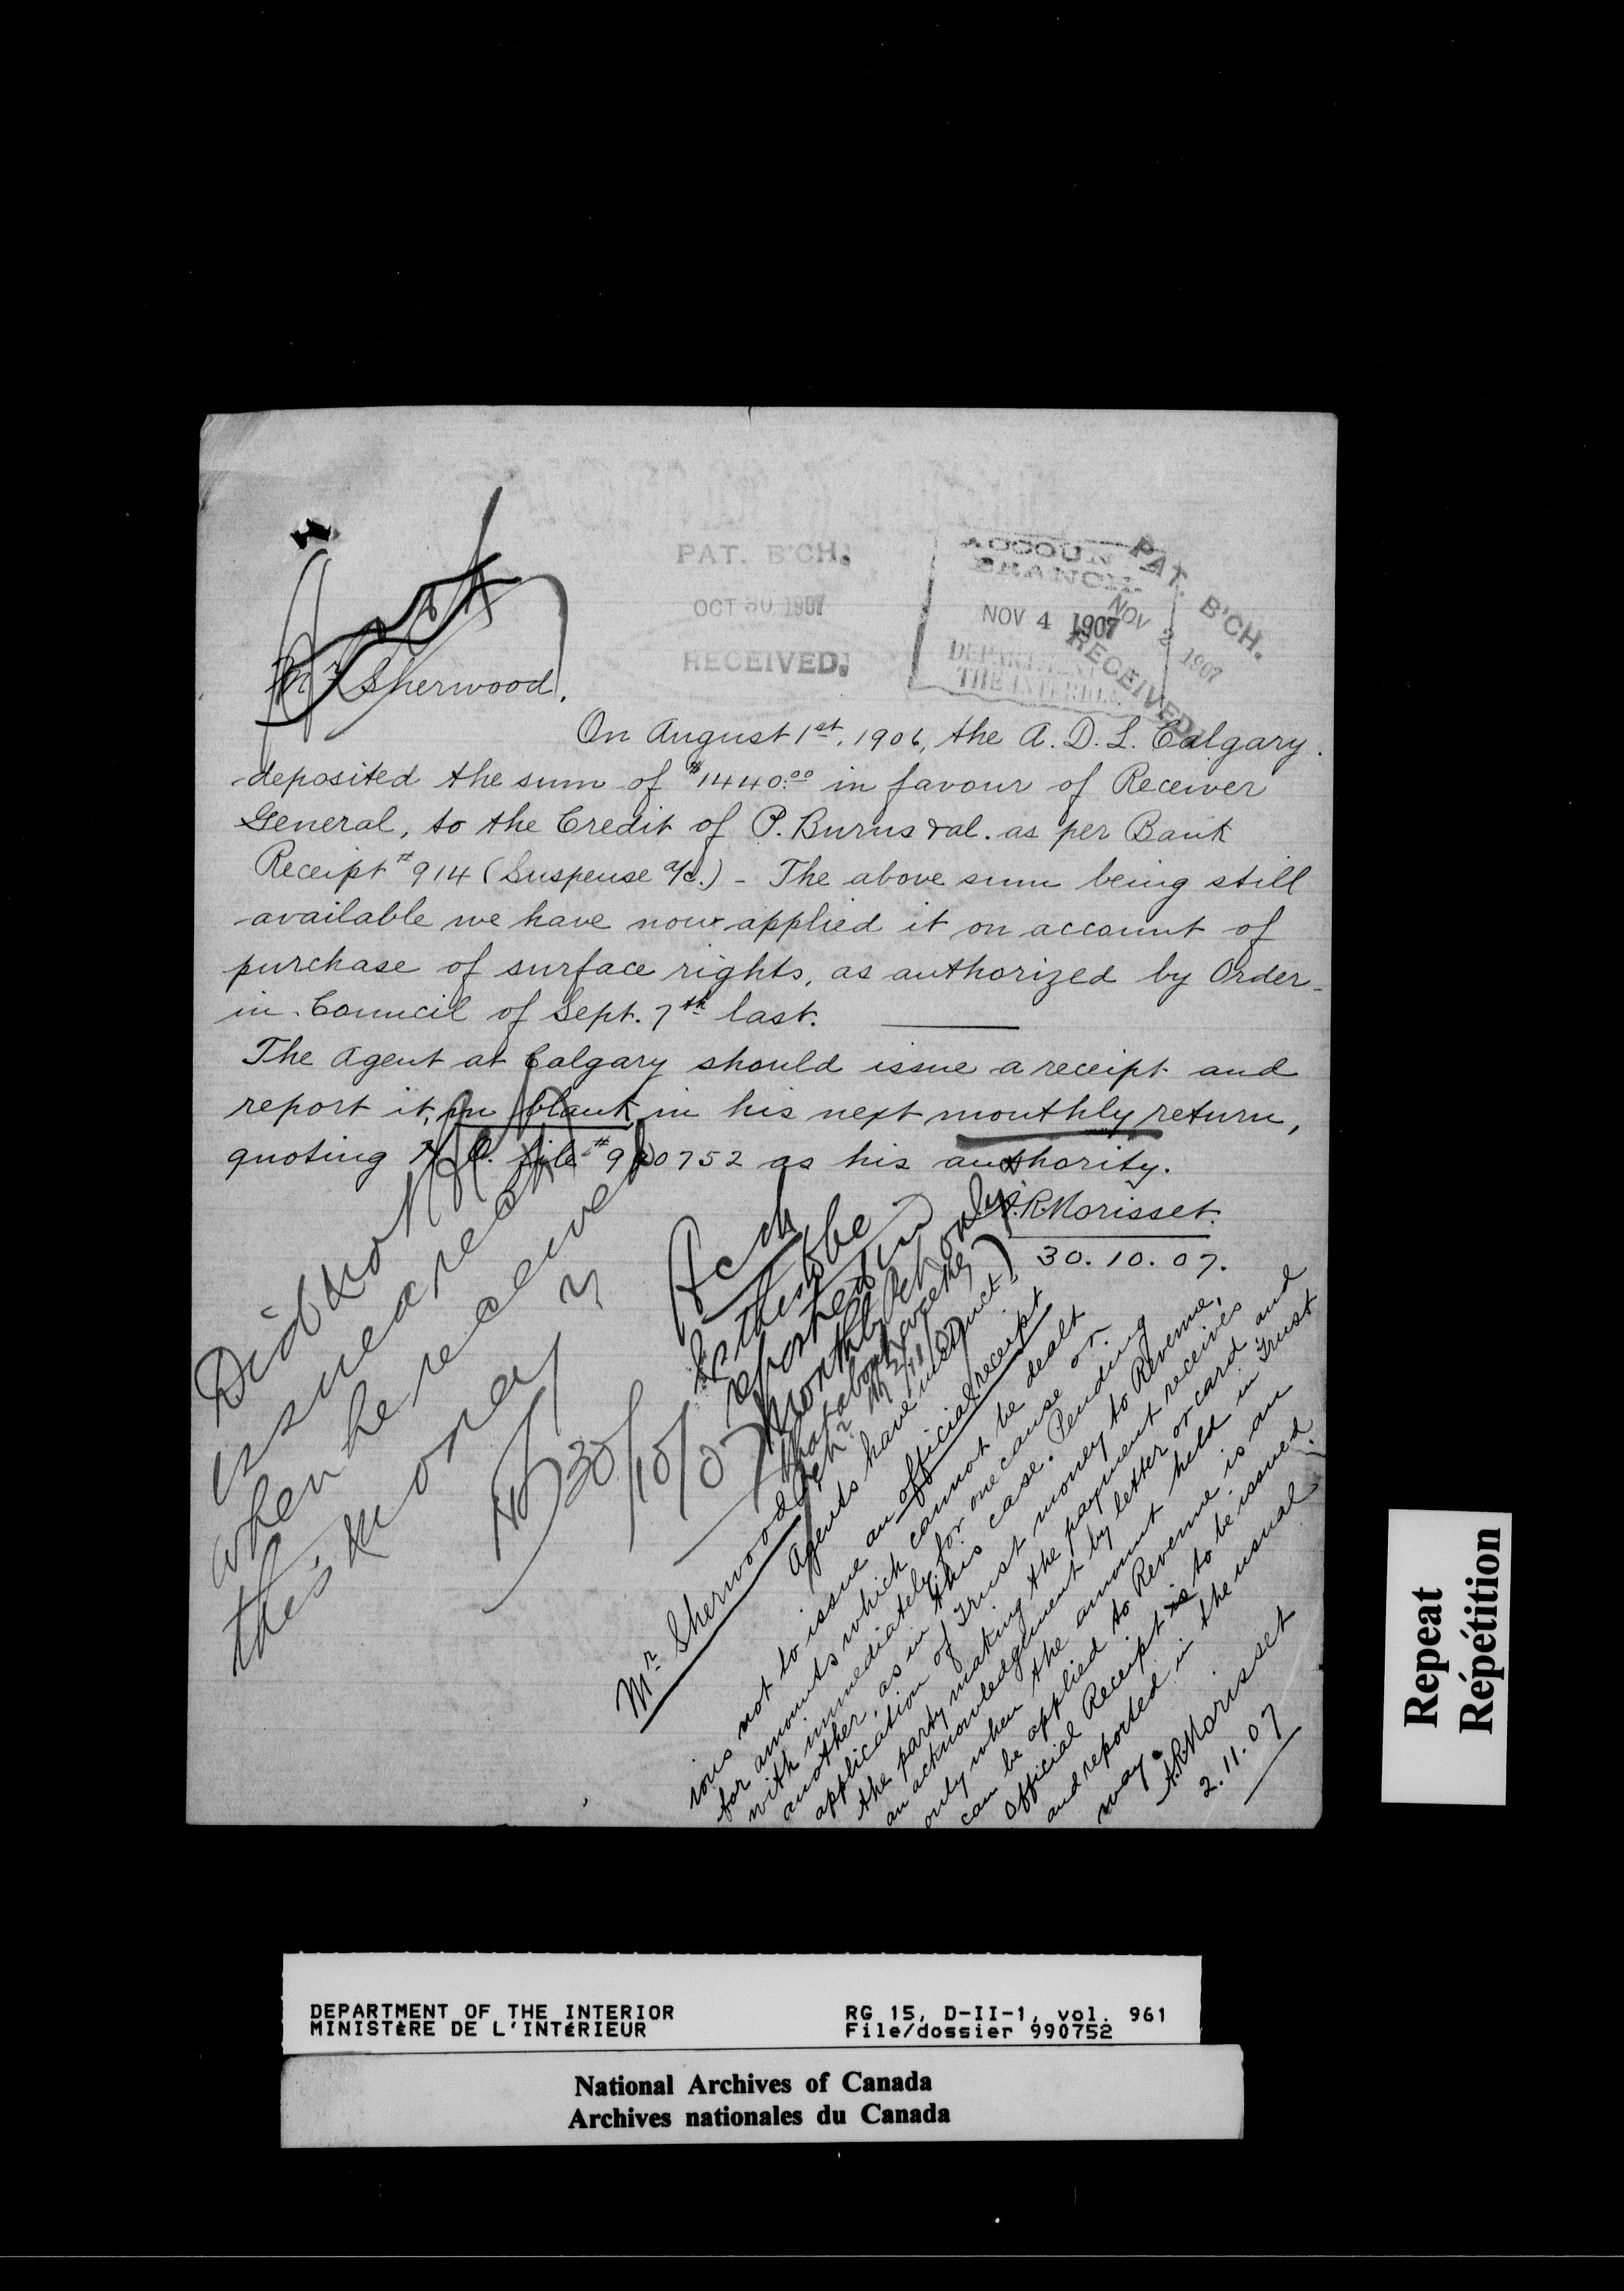 PAT. B'CH.
OCT 30 1907
RECEIVED.
ACCOUN
BRANCH.
NOV 4 1907
DEPARTMENT
THE INTERIOR
PAT. B'CH.
NOV 2 1907
RECEIVED.
Mr Sherwood.
On August 1st, 1906, the A. D. L. Calgary.
deposited the sum of $1440.00 in favour of Receiver
General, to the Credit of P. Burns & al. as per Bank
Receipt #914 (Suspense a/c.) - The above sum being still
available we have now applied it on account of
purchase of surface rights, as authorized by Order-
in-Council of Sept. 7th last.
The Agent at Calgary should issue a receipt and
report it, in blank, in his next monthly return,
quoting H. O. file #990752 as his authority.
A.R.Morisset.
30.10.07.
Did not
issue a receipt
when he received
this money
30/10/07
Is this to be
reported in
monthly Ret only
2/11/07
Mr Sherwood
Agents have instruct
ions not to issue an official receipt
for amounts which cannot be dealt
with immediately for one cause or
another, as in this case. Pending
application of Trust money to Revenue,
the party making the payment receives
an acknowledgement by letter or card and
only when the amount held in Trust
can be applied to Revenue is an
Official Receipt to be issued
and reported in the usual
way.
A.R.Morisset
2.11.07
Repeat
Répétition
DEPARTMENT OF THE INTERIOR
MINISTÈRE DE L'INTÉRIEUR
RG 15, D-II-1, vol. 961
File/dossier 990752
National Archives of Canada
Archives nationales du Canada